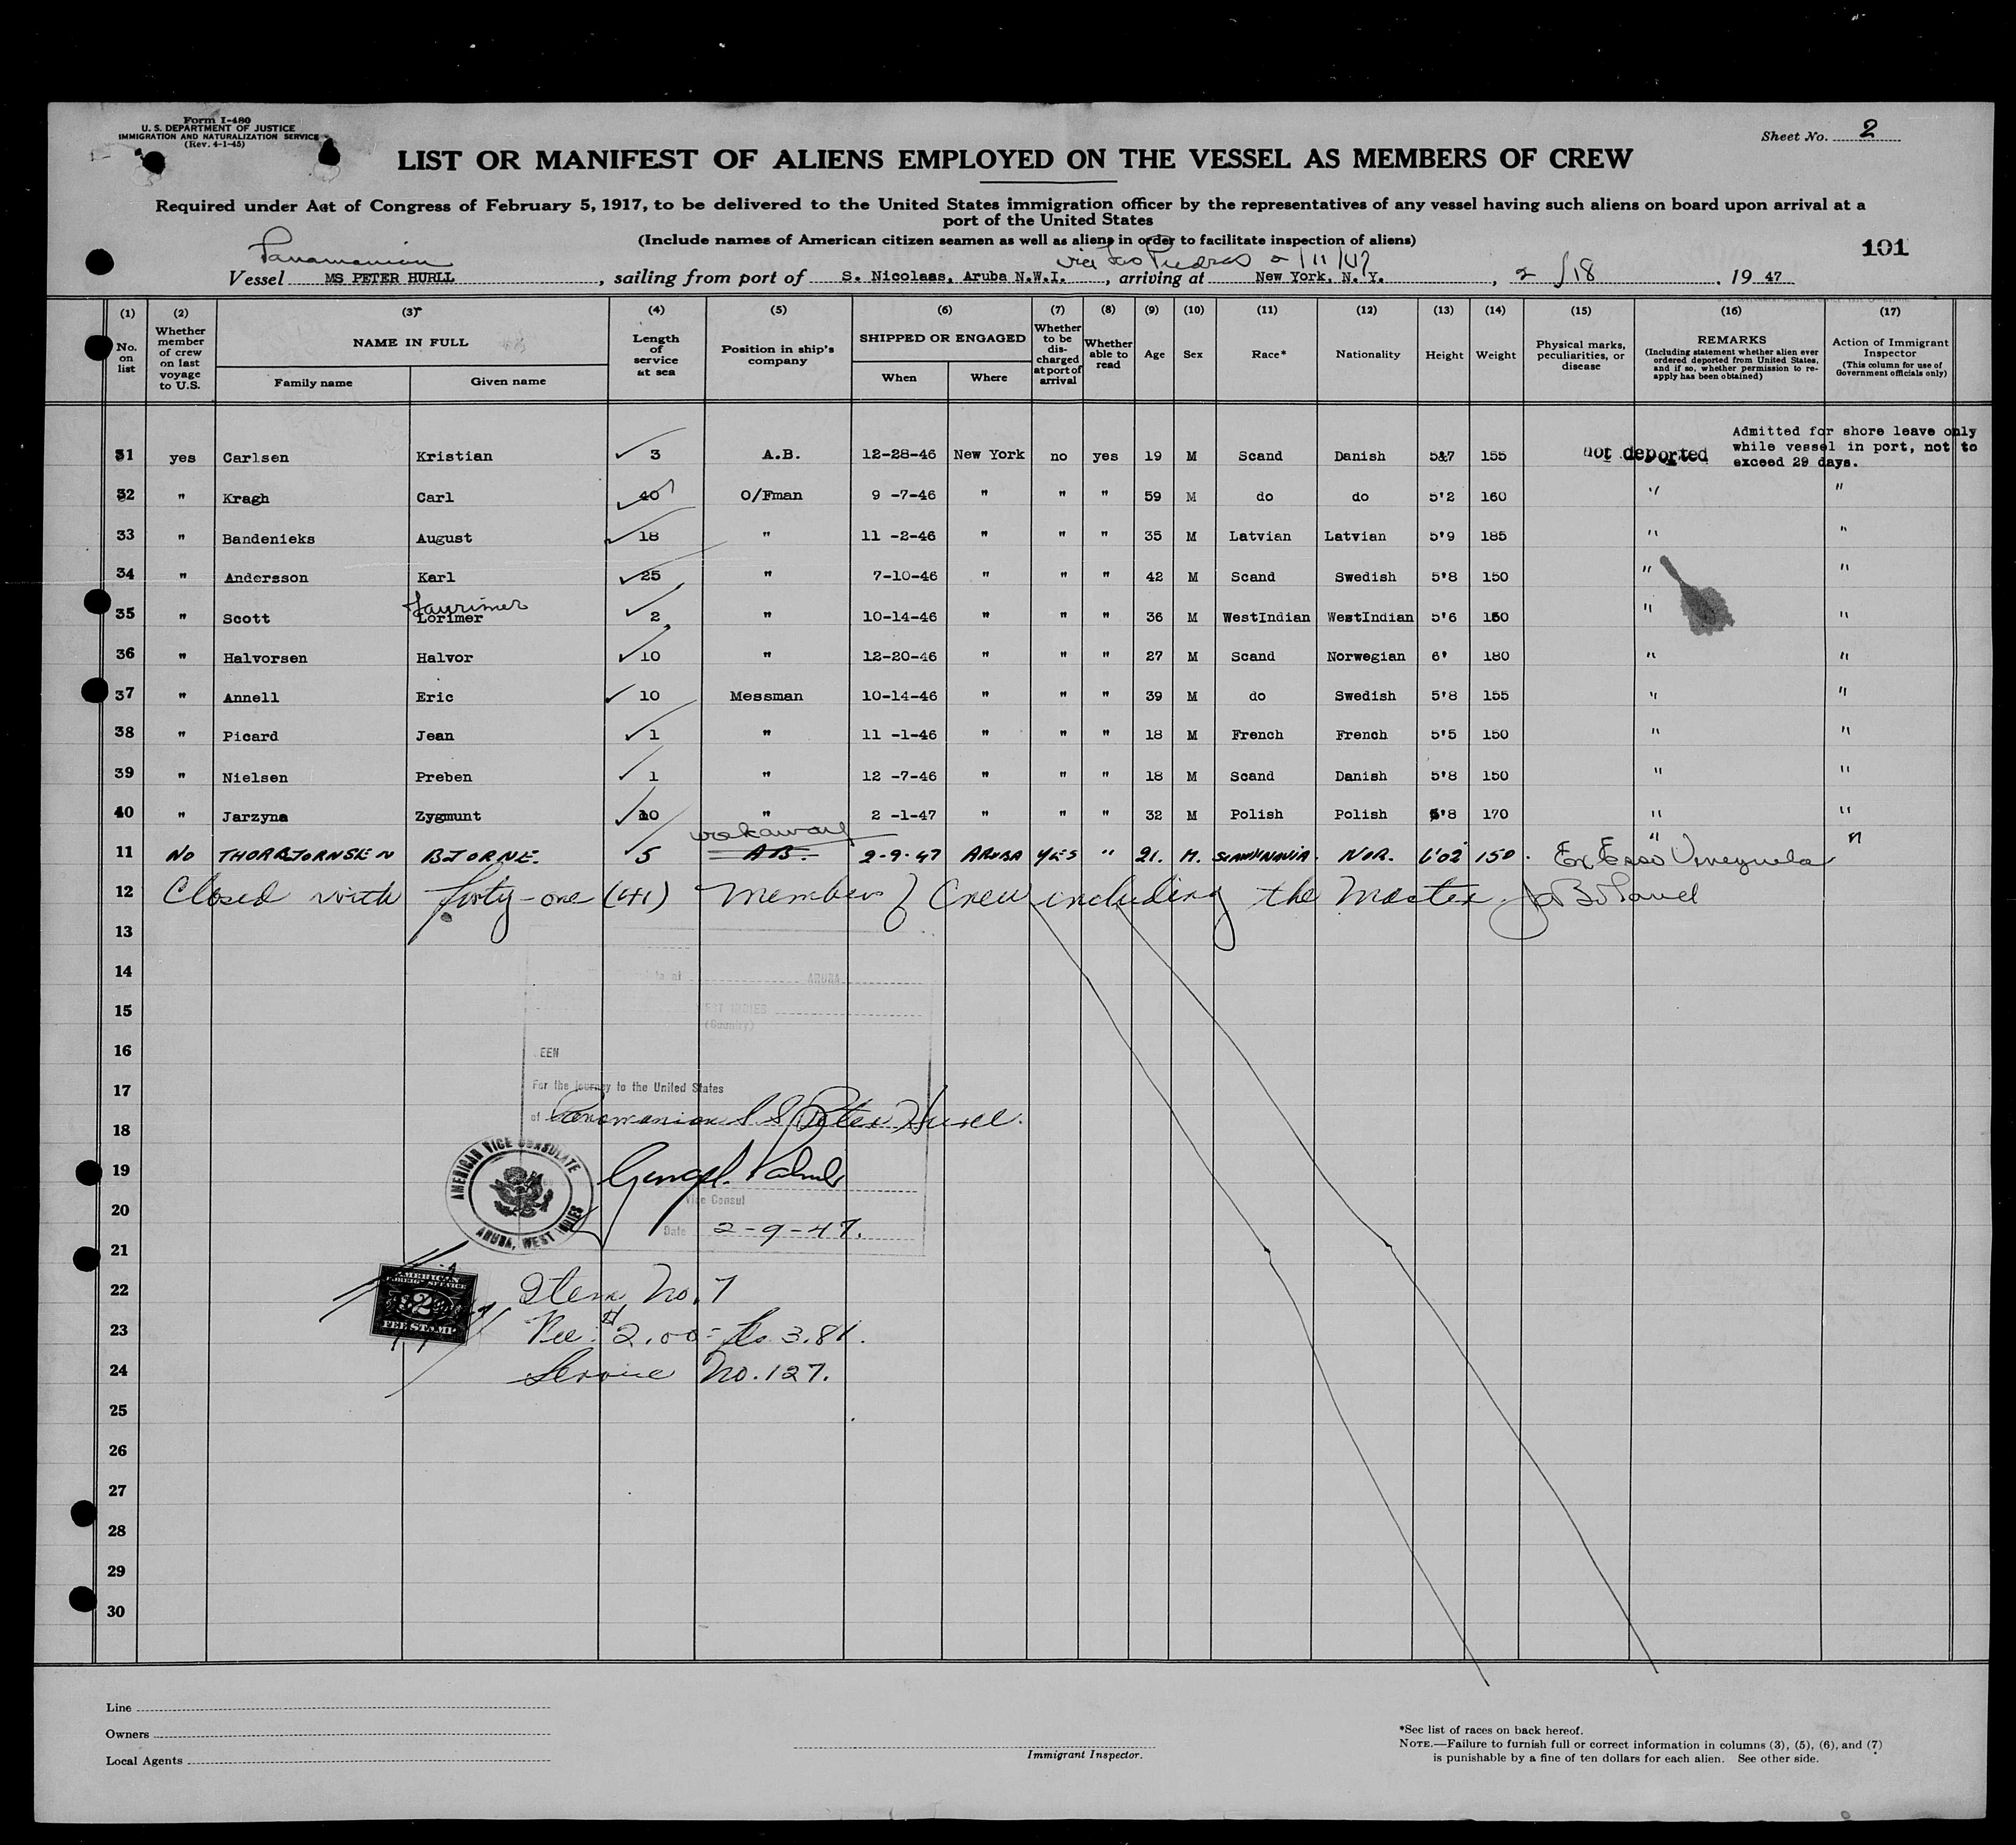 Form I-480
U. S. DEPARTMENT OF JUSTICE
IMMIGRATION AND NATURALIZATION SERVICE
(Rev. 4-1-45)
Sheet No. 2
LIST OR MANIFEST OF ALIENS EMPLOYED ON THE VESSEL AS MEMBERS OF CREW
Required under Act of Congress of February 5, 1917, to be delivered to the United States immigration officer by the representatives of any vessel having such aliens on board upon arrival at a
port of the United States
(Include names of American citizen seamen as well as aliens in order to facilitate inspection of aliens)
101
Panamanian via Las Piedras 2/11/47
Vessel MS PETER HURLL, sailing from port of S. Nicolaas, Aruba N.W.I., arriving at New York, N. Y., 2/18, 19 47
(1) (2) (3) (4) (5) (6) (7) (8) (9) (10) (11) (12) (13) (14) (15) (16) (17)
No. on list
Whether member of crew on last voyage to U.S.
NAME IN FULL
Family name Given name
Length of service at sea
Position in ship's company
SHIPPED OR ENGAGED
When Where
Whether to be discharged at port of arrival
Whether able to read
Age Sex Race* Nationality Height Weight
Physical marks, peculiarities, or disease
REMARKS
(Including statement whether alien ever ordered deported from United States, and if so, whether permission to reapply has been obtained)
Action of Immigrant Inspector
(This column for use of Government officials only)
Admitted for shore leave only
while vessel in port, not to
exceed 29 days.
31 yes Carlsen Kristian 3 A.B. 12-28-46 New York no yes 19 M Scand Danish 5&7 155 not deported
32 " Kragh Carl 40 O/Fman 9 -7-46 " " " 59 M do do 5'2 160 " "
33 " Bandenieks August 18 " 11 -2-46 " " " 35 M Latvian Latvian 5'9 185 " "
34 " Andersson Karl 25 " 7-10-46 " " " 42 M Scand Swedish 5'8 150 " "
Laurimer
35 " Scott Lorimer 2 " 10-14-46 " " " 36 M WestIndian WestIndian 5'6 150 " "
36 " Halvorsen Halvor 10 " 12-20-46 " " " 27 M Scand Norwegian 6' 180 " "
37 " Annell Eric 10 Messman 10-14-46 " " " 39 M do Swedish 5'8 155 " "
38 " Picard Jean 1 " 11 -1-46 " " " 18 M French French 5'5 150 " "
39 " Nielsen Preben 1 " 12 -7-46 " " " 18 M Scand Danish 5'8 150 " "
40 " Jarzyna Zygmunt 10 " 2 -1-47 " " " 32 M Polish Polish 5'8 170 " "
workaway
11 No THORBJORNSEN BJORNE. 5 AB. 2-9-47 ARUBA YES " 21. M. SCANDINAVIA. NOR. 6'02 150. Ex Esso Venezuela " "
12 Closed with forty-one (41) members of Crew including the Master.
13
14 ARUBA
15 WEST INDIES
(Country)
16 EEN
17 For the journey to the United States
of Panamanian S S Peter Hurll.
18
19
AMERICAN VICE CONSULATE
ARUBA, WEST INDIES
Vice Consul
20
Date 2-9-47.
21
22 Item No. 7
AMERICAN
FOREIGN SERVICE
$2
FEE STAMP
23 Fee: $2.00 = fls 3.81.
24 Service No. 127.
25
26
27
28
29
30
Line
Owners
Local Agents
Immigrant Inspector.
*See list of races on back hereof.
NOTE.—Failure to furnish full or correct information in columns (3), (5), (6), and (7)
is punishable by a fine of ten dollars for each alien. See other side.